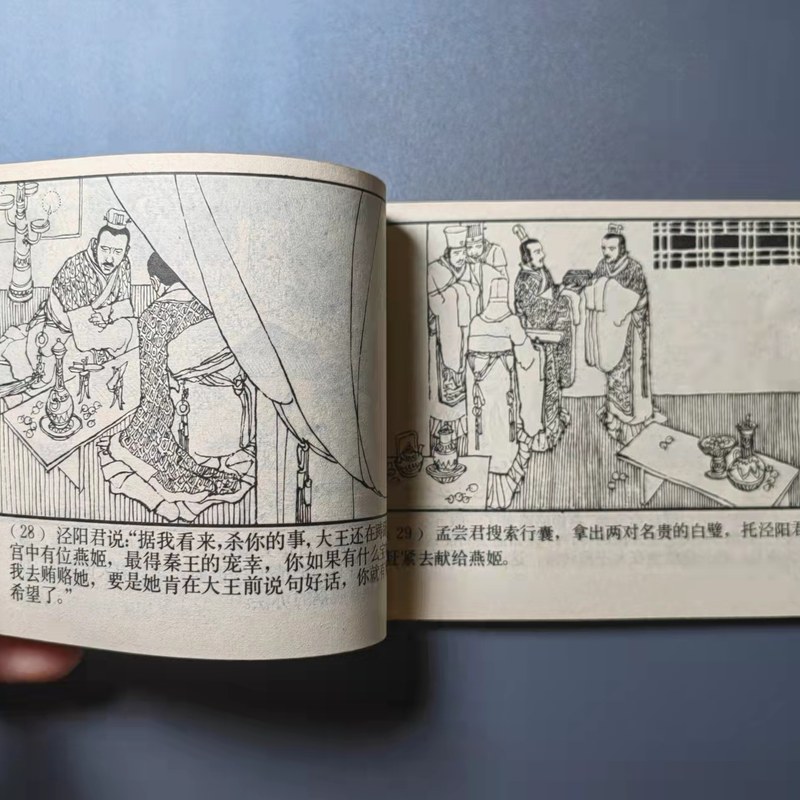 （28）泾阳君说：“据我看来，杀你的事，大王还在
宫中有位燕姬，最得秦王的宠幸，你如果有什么
我去贿赂她，要是她肯在大王前说句好话，你就
希望了。”
29）孟尝君搜索行囊，拿出两对名贵的白璧，托泾阳君
赶紧去献给燕姬。